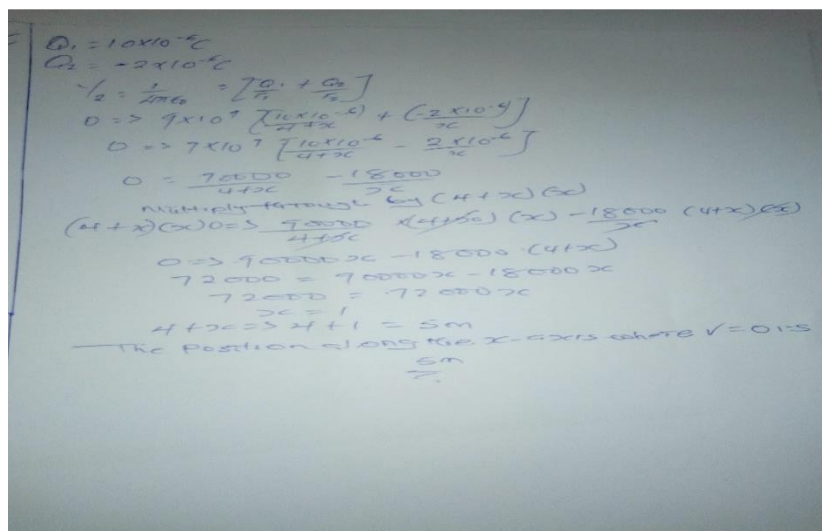 Q₁ = 10×10⁻⁶C
Q₂ = -2×10⁻⁶C
= 1/4πε₀ = [Q₁/r₁ + Q₂/r₂]
0 => 9×10⁹ [(10×10⁻⁶)/(4+x) + (-2×10⁻⁶)/x]
0 => 9×10⁹ [10×10⁻⁶/(4+x) - 2×10⁻⁶/x]
0 = 90000/(4+x) - 18000/x
Multiply through by (4+x)(x)
(4+x)(x)0 => 90000/(4+x) ×(4+x)(x) - 18000/x (4+x)(x)
0 => 90000x - 18000 (4+x)
72000 = 90000x - 18000x
72000 = 72000x
x = 1
4+x => 4+1 = 5m
The position along the x-axis where V=0 is
5m